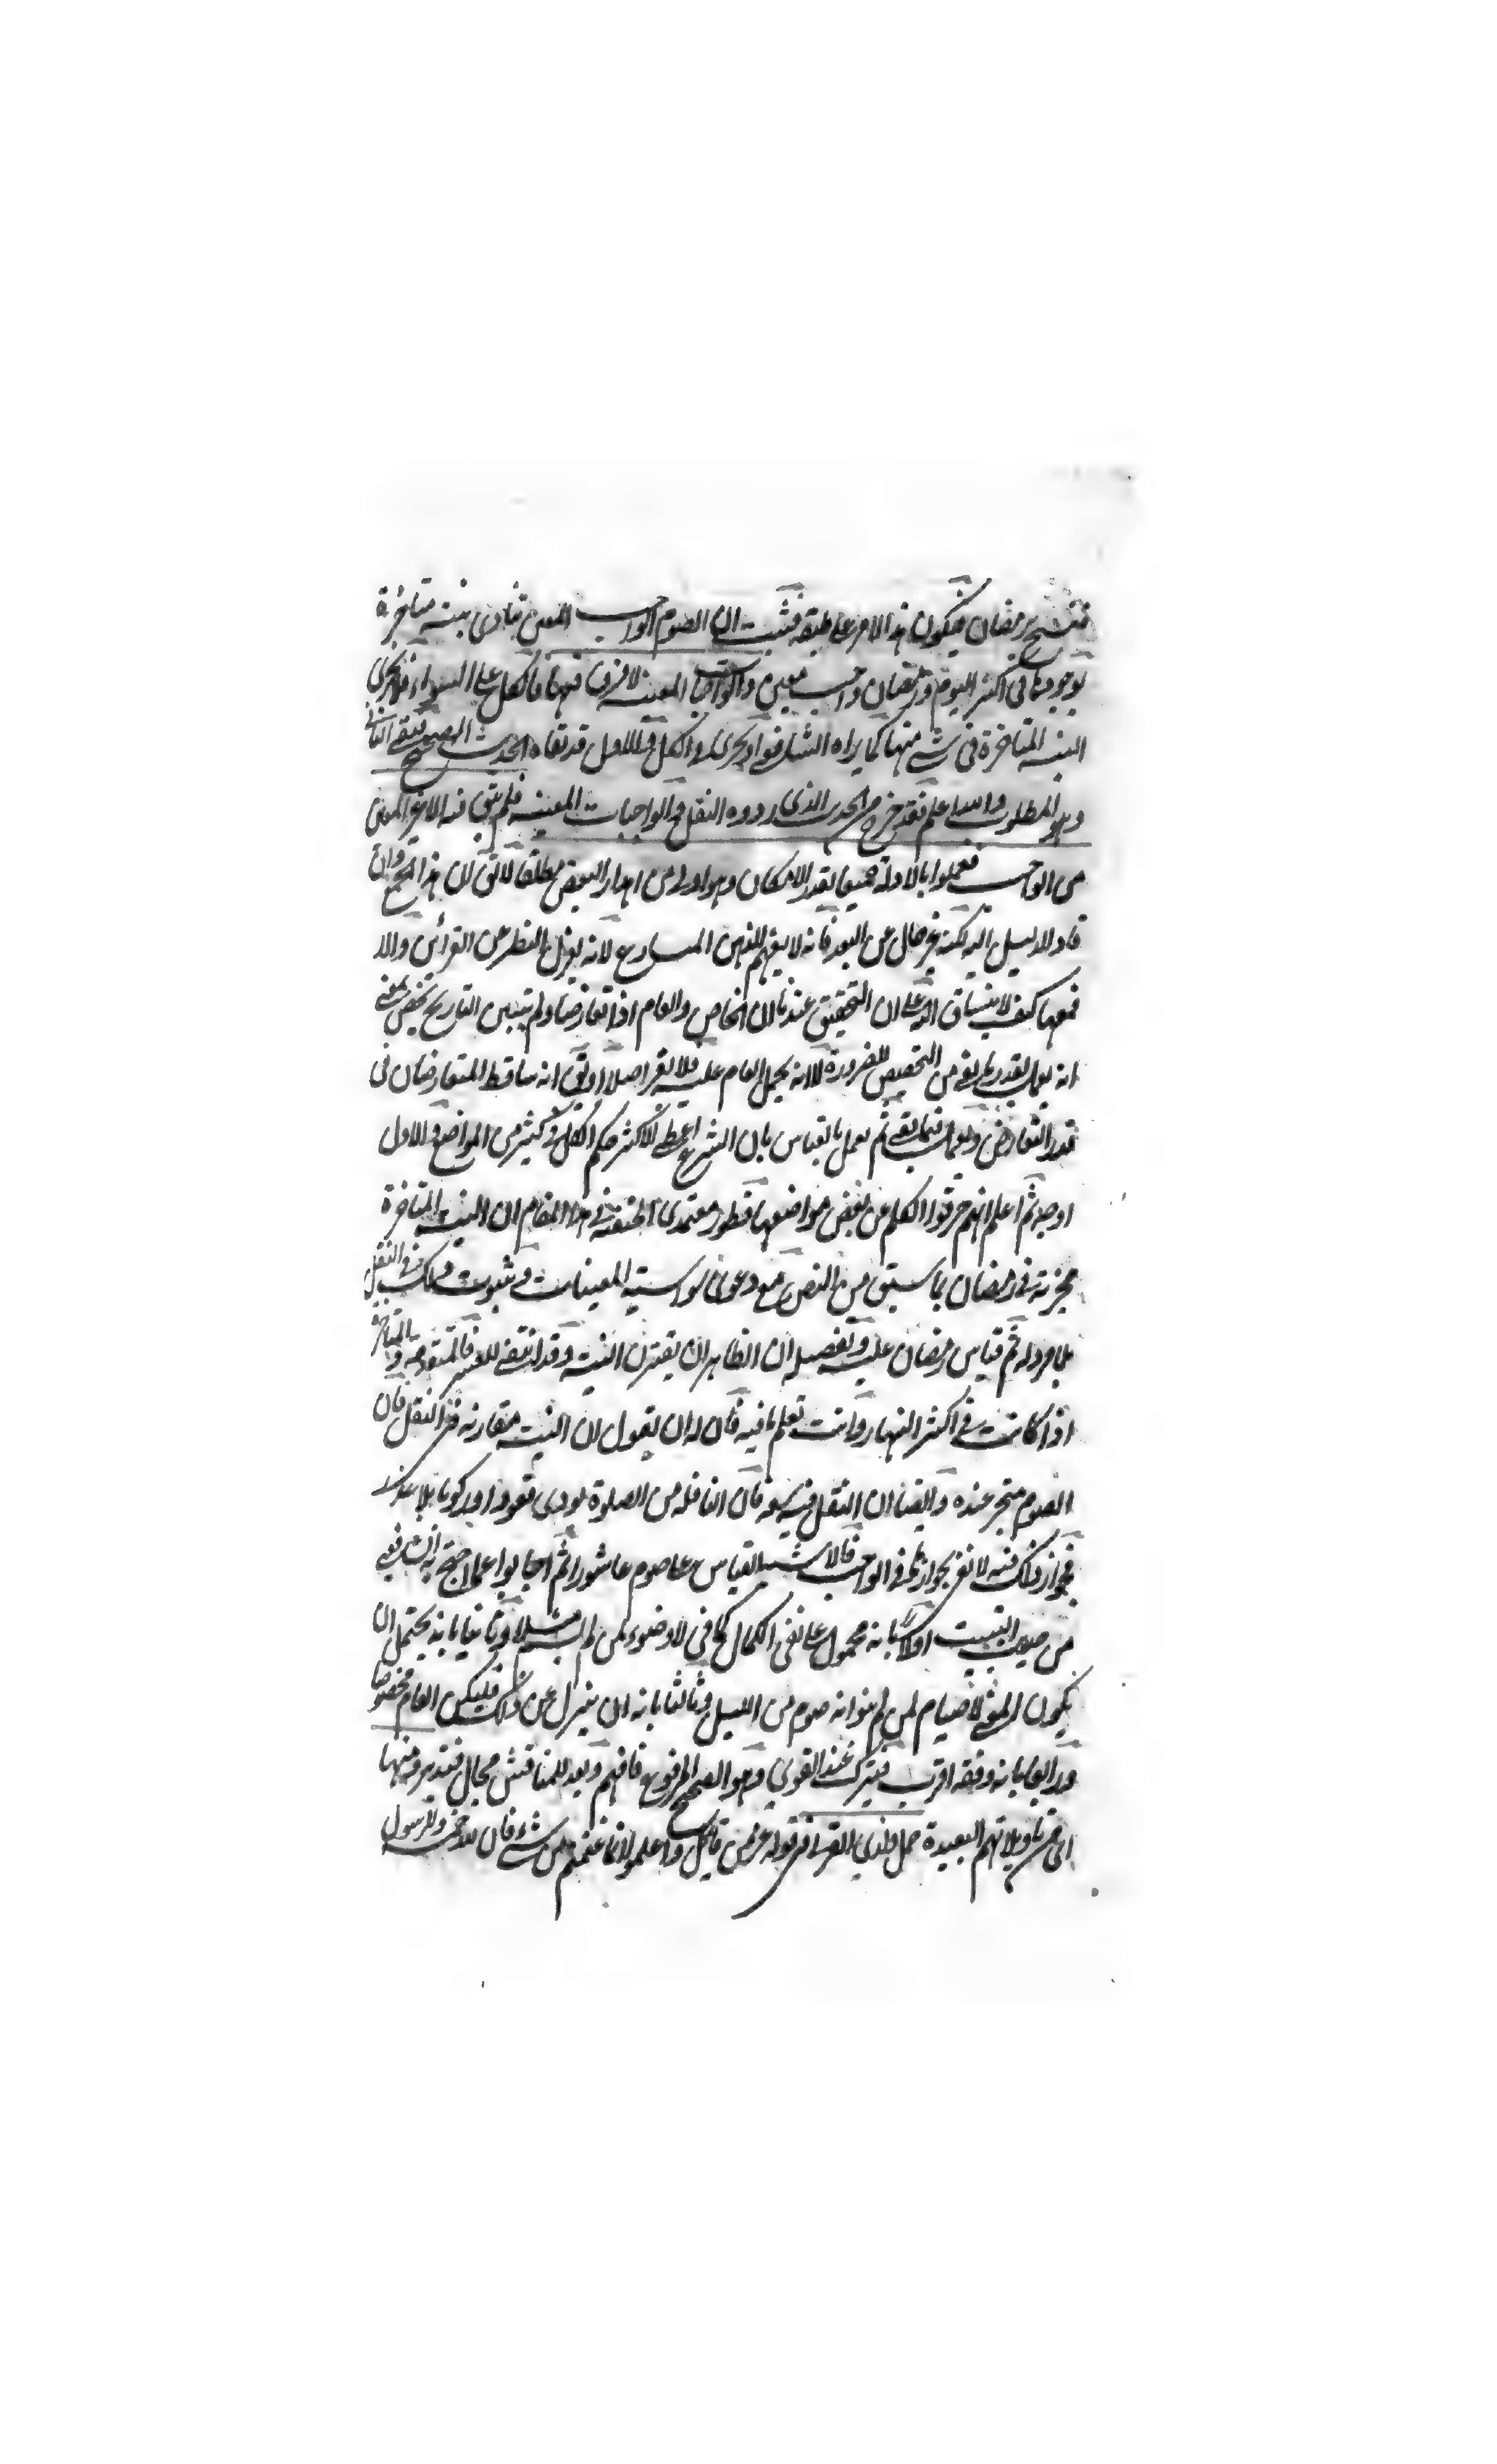 فنسخ برمضان فيكون هذا الامر على طبقه فثبت ان الصوم الواجب المعين يتادى بنية متاخرة
بوجودها في اكثر اليوم ورمضان واجب معين والواجبات المعينة لا فرق فيها فالكل على السواء فلا يجزى
النية المتاخرة في شئ منها كما يراه الشافعي او يجزى في الكل والاول قد نفاه الحديث الصحيح فبقي الثاني
وهو المطلوب والله اعلم فقد خرج من الحديث الذي رووه النفل والواجبات المعينة فلم يبق فيه الا غير المعين
من الواجب فعملوا بالادلة جميعا بقدر الامكان وهو اولى من اهدار البعض مطلقا لا يق ان هذا الجمع وان
قاد الدليل اليه لكنه غير خال عن البعد فانه لا يفهم للذهن المسارع لانه بعزل النظر عن القرائن والا
فمعها كيف لا ينساق اليه على ان التحقيق عندنا ان الخاص والعام اذا تعارضا ولم يتبين التاريخ يخص بمعنى
انه يعمل بقدر ما بقي من التخصيص للضرورة لا انه يحمل العام عليه فلا يغر اصلا او يق انه ساقط المتعارضان في
قدر التعارض ويعمل فيما بقي ثم يعمل بالقياس بان الشرع اعطى للاكثر حكم الكل في كثير من المواضع والاول
اوجه ثم اعلم انهم حرفوا الكلم عن بعض مواضعها فطور معتمدي الحنفية في هذا المقام ان النية المتاخرة
مجزية في رمضان بما سبق من النص مع دعوى سواسية المعينات في ثبوت ذلك في النفل
بما مر وله ثم قياس رمضان عليه وتفصيله ان الظاهر ان يقترن النية وقد انتفى للعسر فالمتقدمة والمتاخرة
اذا كانت في اكثر النهار وانت تعلم ما فيه فان له ان يقول ان النية متقارنة في النفل فان
الصوم متجز عنده وايضا ان النفل فيه سعة فان النافلة من الصلوة يودى قعودا وركوبا بلا عذر
فجواز ذلك فيه لا يغر بجوازه في الواجب فالاشبه القياس على صوم عاشورا ثم اجابوا عما احتج به الشافعي
من حديث التبييت اولا بانه محمول على نفي الكمال كما في لا وضوء لمن لم يسم مثلا وثانيا بانه يحتمل ان
يكون المعنى لا صيام لمن لم ينو انه صوم من الليل وثالثا بانه ان ينزل عن ذلك فليكن العام مخصوصا
ورابعا بانه وقفه اقرب فيترك عند القوي وهو الصحيح المرفوع فافهم وبعد للمناقش مجال فتدبر ومنها
اي من تاويلاتهم البعيدة حمل ولذي القربى في قوله عز من قائل واعلموا انما غنمتم من شئ فان لله خمسه وللرسول